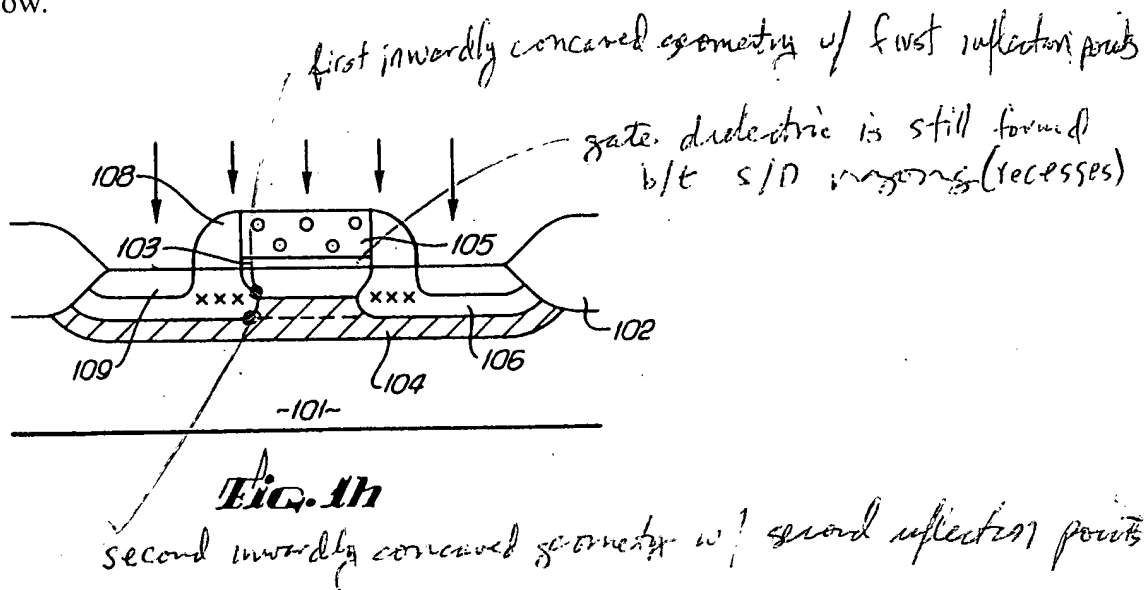 ow.
first inwardly concaved geometry w/ first inflection points
gate dielectric is still formed
b/t S/D regions (recesses)
108
103
105
xxx
xxx
109
106
102
104
-101-
Fig. 1h
second inwardly concaved geometry w/ second inflection points